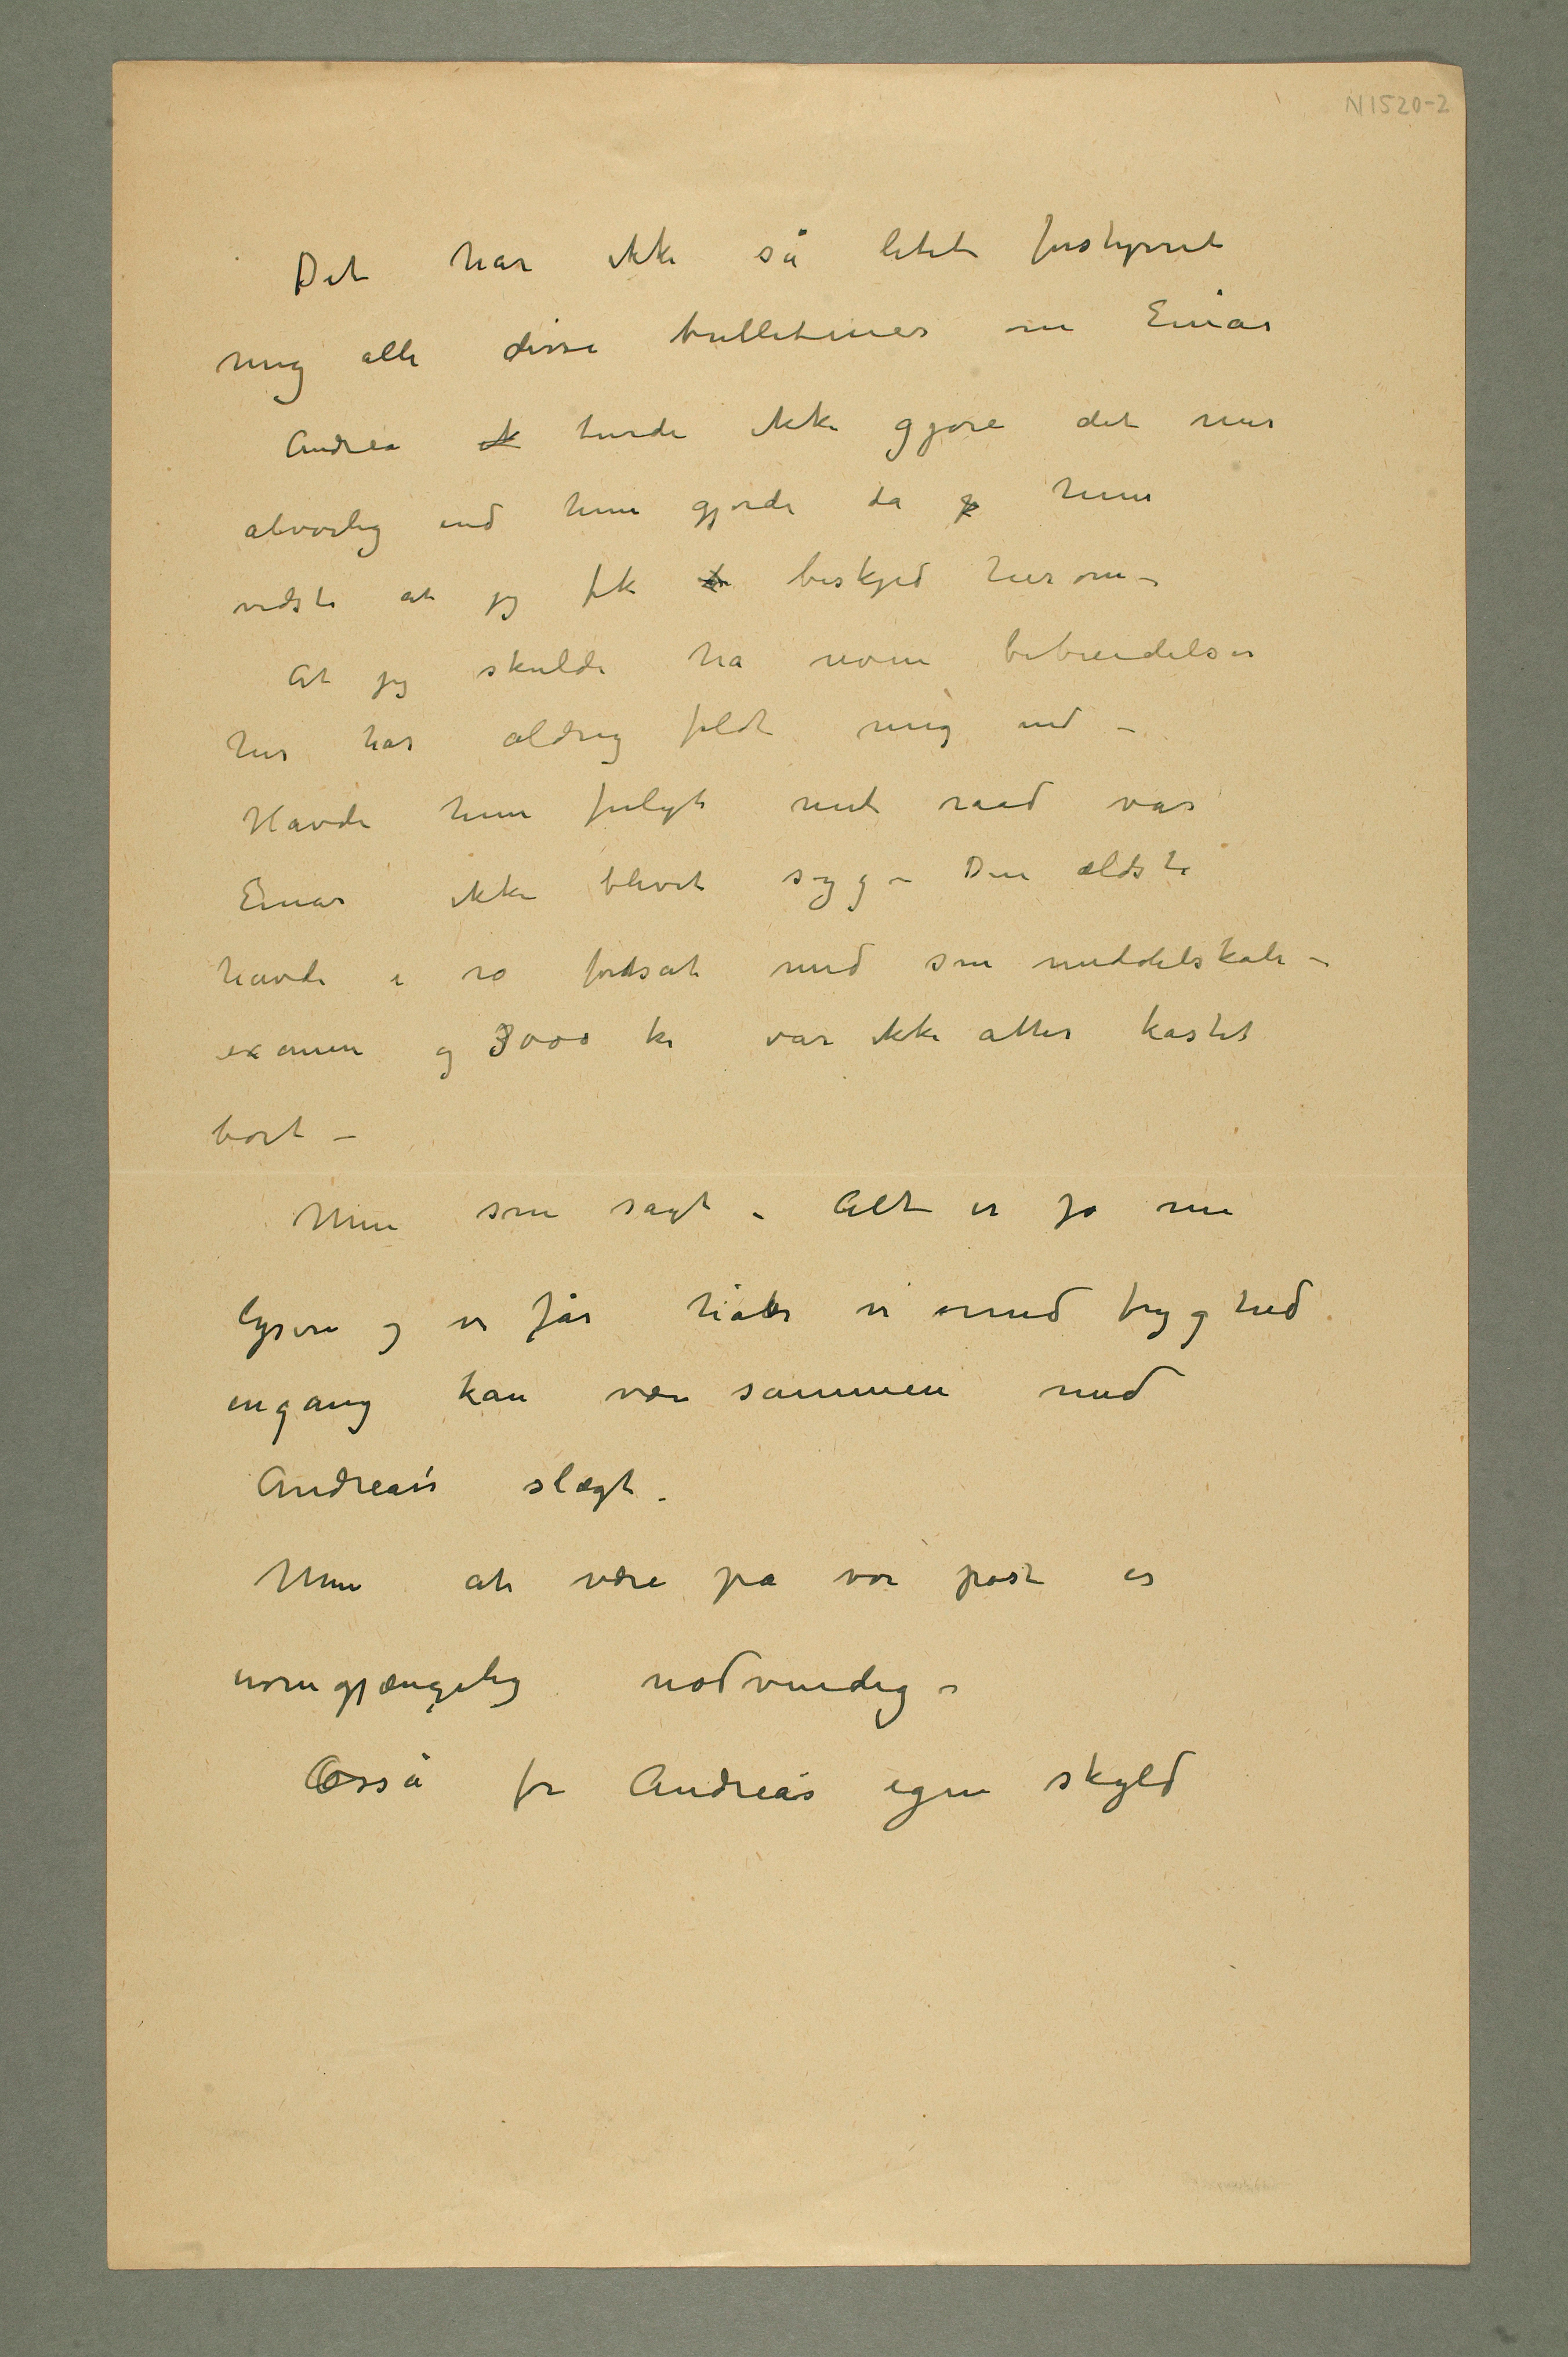 N 1520-2
Det har ikke så litet forstyrret
mig alle disse bulletiner om Einar
Andrea turde ikke gjøre det mer
alvorlig end hun gjorde da hun
vidste at jeg fik beskjed herom –
At jeg skulde ha noen bebreidelser
her har aldrig faldt mig ind –
Havde hun fulgt mit raad var
Einar ikke blevet syg – Den ældste
havde i ro fortsat med sin middelskole –
examen og 3000 kr var ikke atter kastet
bort –
Men som sagt – Alt er jo nu
lysere og vi får håbe vi med tryghed
engang kan være sammen med
Andreas's slægt –
Men at være på vor post er
uomgjængelig nødvendig –
Osså for Andreas egen skyld